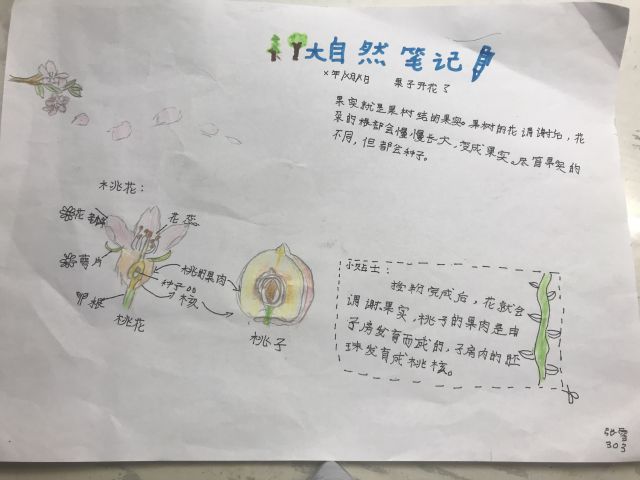 大自然笔记
×年×月×日 果子开花了
果实就是果树结的果实。果树的花凋谢后，花
朵的根都会慢慢长大，变成果实。尽管果实的
不同，但都会种子。
桃花：
花瓣
花蕊
萼片
根
桃的果肉
种子
核
桃花
桃子
小贴士：
授粉完成后，花就会
凋谢果实，桃子的果肉是由
子房发育而成的，子房内的胚
珠发育成桃核。
303